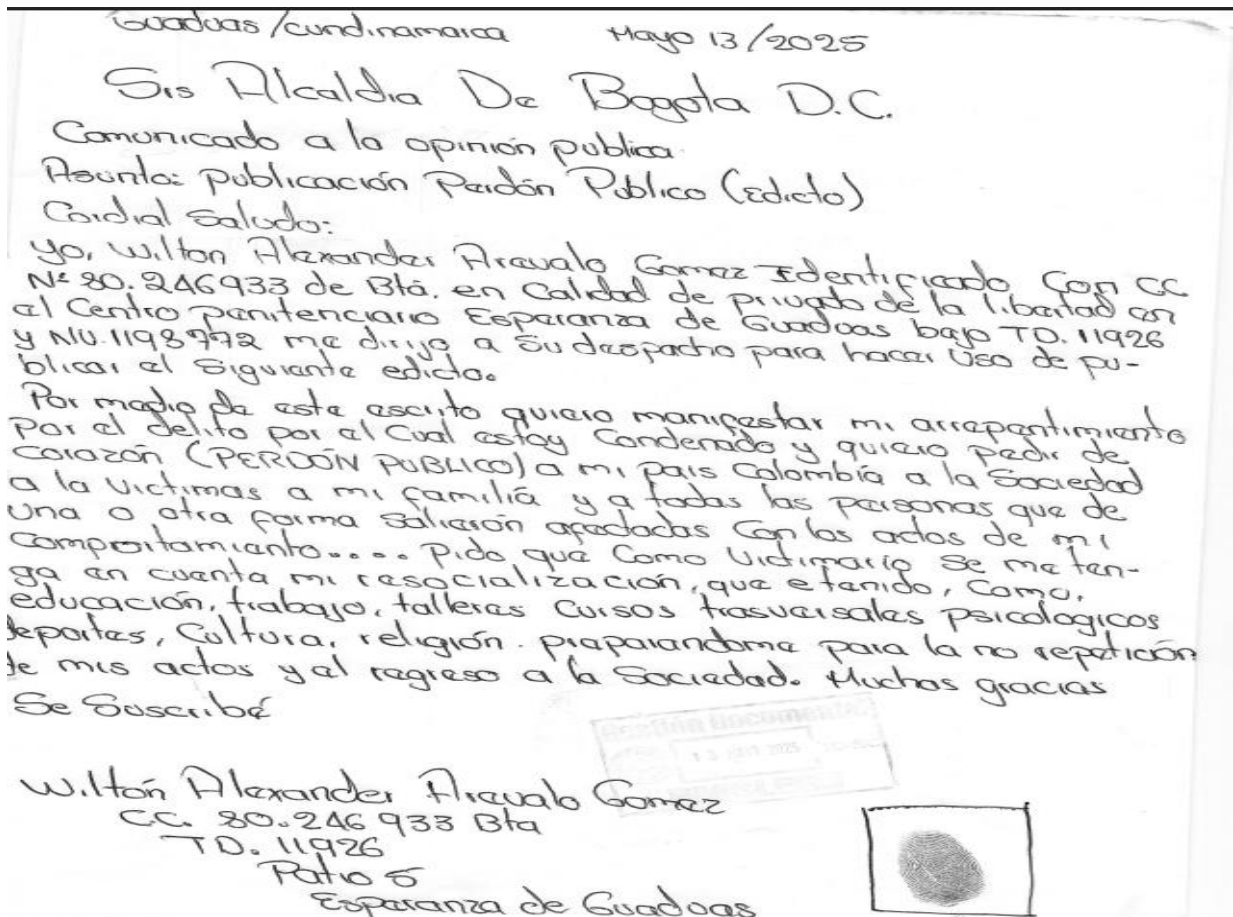 Guaduas/cundinamarca Mayo 13/2025
Srs Alcaldia De Bogota D.C.
Comunicado a la opinión publica
Asunto: publicación Perdón Publico (edicto)
Cordial Saludo:
yo, Wilton Alexander Arevalo Gomez Identificado Con CC
Nº 80.246933 de Btá. en Calidad de privado de la libertad en
el Centro penitenciario Esperanza de Guaduas bajo TD. 11926
y NU.1198772 me dirijo a Su despacho para hacer Uso de pu-
blicar el Siguiente edicto.
Por medio de este escrito quiero manifestar mi arrepentimiento
Por el delito por el Cual estoy Condenado y quiero pedir de
Corazón (PERDÓN PUBLICO) a mi pais Colombia a la Sociedad
a la Victimas a mi familia y a todas las personas que de
una o otra forma Salierón afectadas Con los actos de mi
Comportamiento.... Pido que Como Victimario Se me ten-
ga en cuenta mi resocialización, que e tenido, Como,
educación, trabajo, talleres Cursos trasversales psicologicos
deportes, Cultura, religión. preparandome para la no repetición
de mis actos y el regreso a la Sociedad. Muchas gracias
Se Suscribé
Gestión Documental
Wiltón Alexander Arevalo Gomez
CC. 80.246 933 Bta
TD. 11926
Patio 5
Esperanza de Guaduas